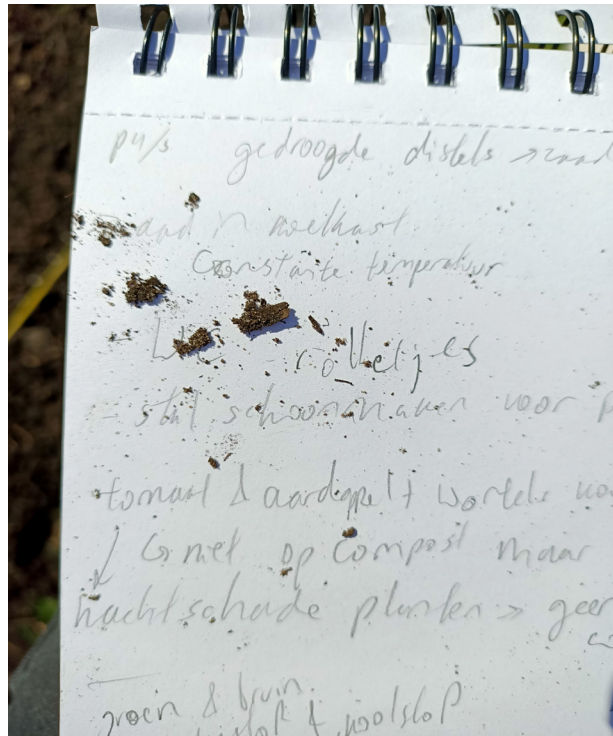 gedroogde distels → zaad
zaad in koelkast
↳ constante temperatuur
WC - rolletjes
- stal schoonmaken voor
tomaat & aardappelt wortels
↓ ↳ niet op compost maar
nachtschade planten → geen
groen & bruin
& koolstof